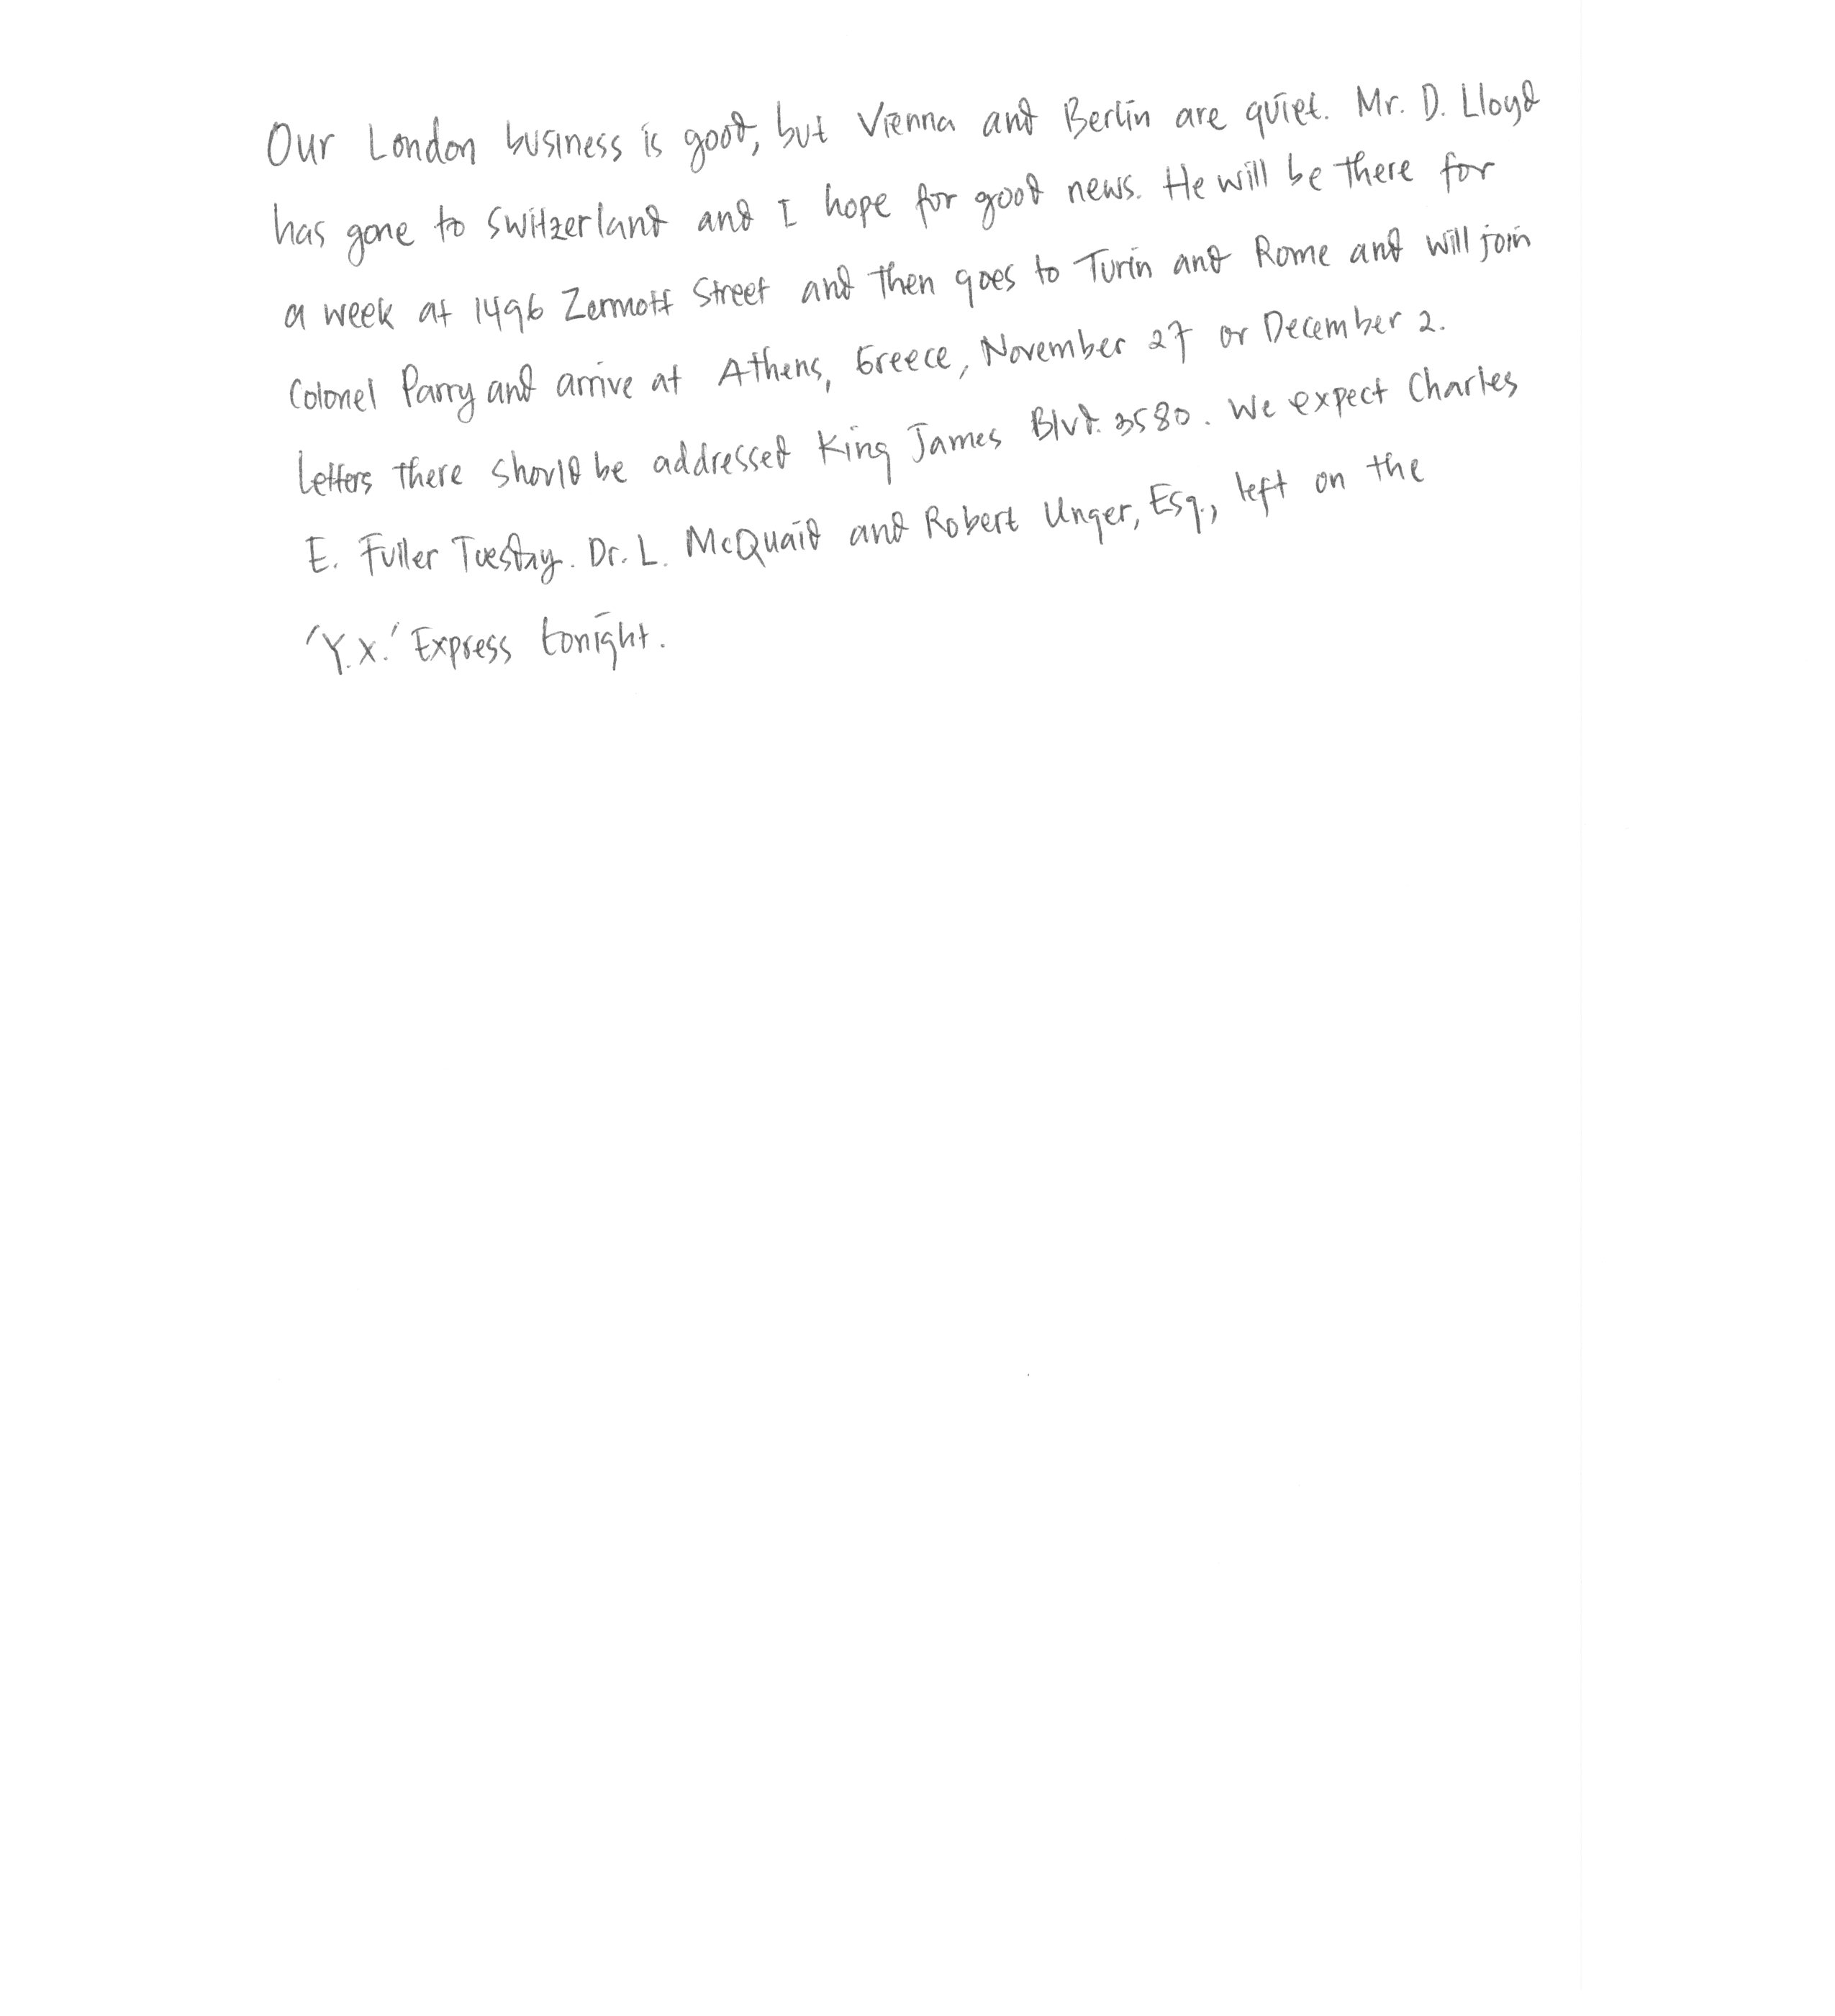 Our London business is good, but Vienna and Berlin are quiet. Mr. D. Lloyd
has gone to Switzerland and I hope for good news. He will be there for
a week at 1496 Zermott Street and then goes to Turin and Rome and will join
Colonel Parry and arrive at Athens, Greece, November 27 or December 2.
Letters there should be addressed King James Blvd. 3580. We expect Charles
E. Fuller Tuesday. Dr. L. McQuaid and Robert Unger, Esq., left on the
'Y.X.' Express tonight.